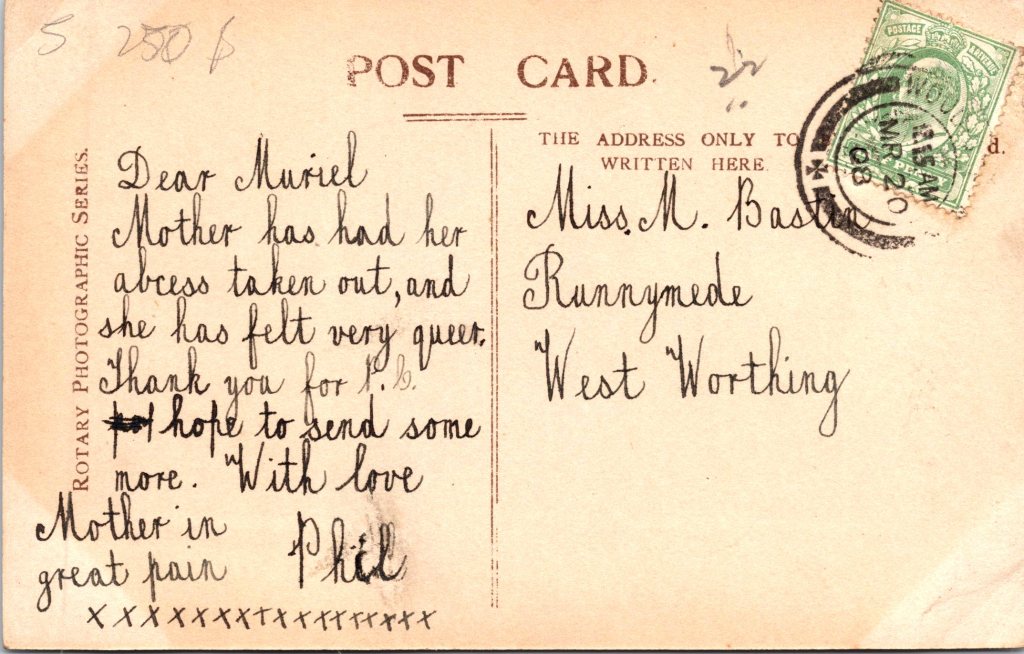 S 250
POST CARD.
ROTARY PHOTOGRAPHIC SERIES.
Dear Muriel
Mother has had her
abcess taken out, and
she has felt very queer.
Thank you for P.C.
hope to send some
more. With love
Phil
Mother in
great pain
xxxxxxxxxxxxxxxxxxx
THE ADDRESS ONLY TO
WRITTEN HERE.
d.
Miss. M. Bastin
Runnymede
West Worthing
POSTAGE
REVENUE
WOO
AM
MR 20
08